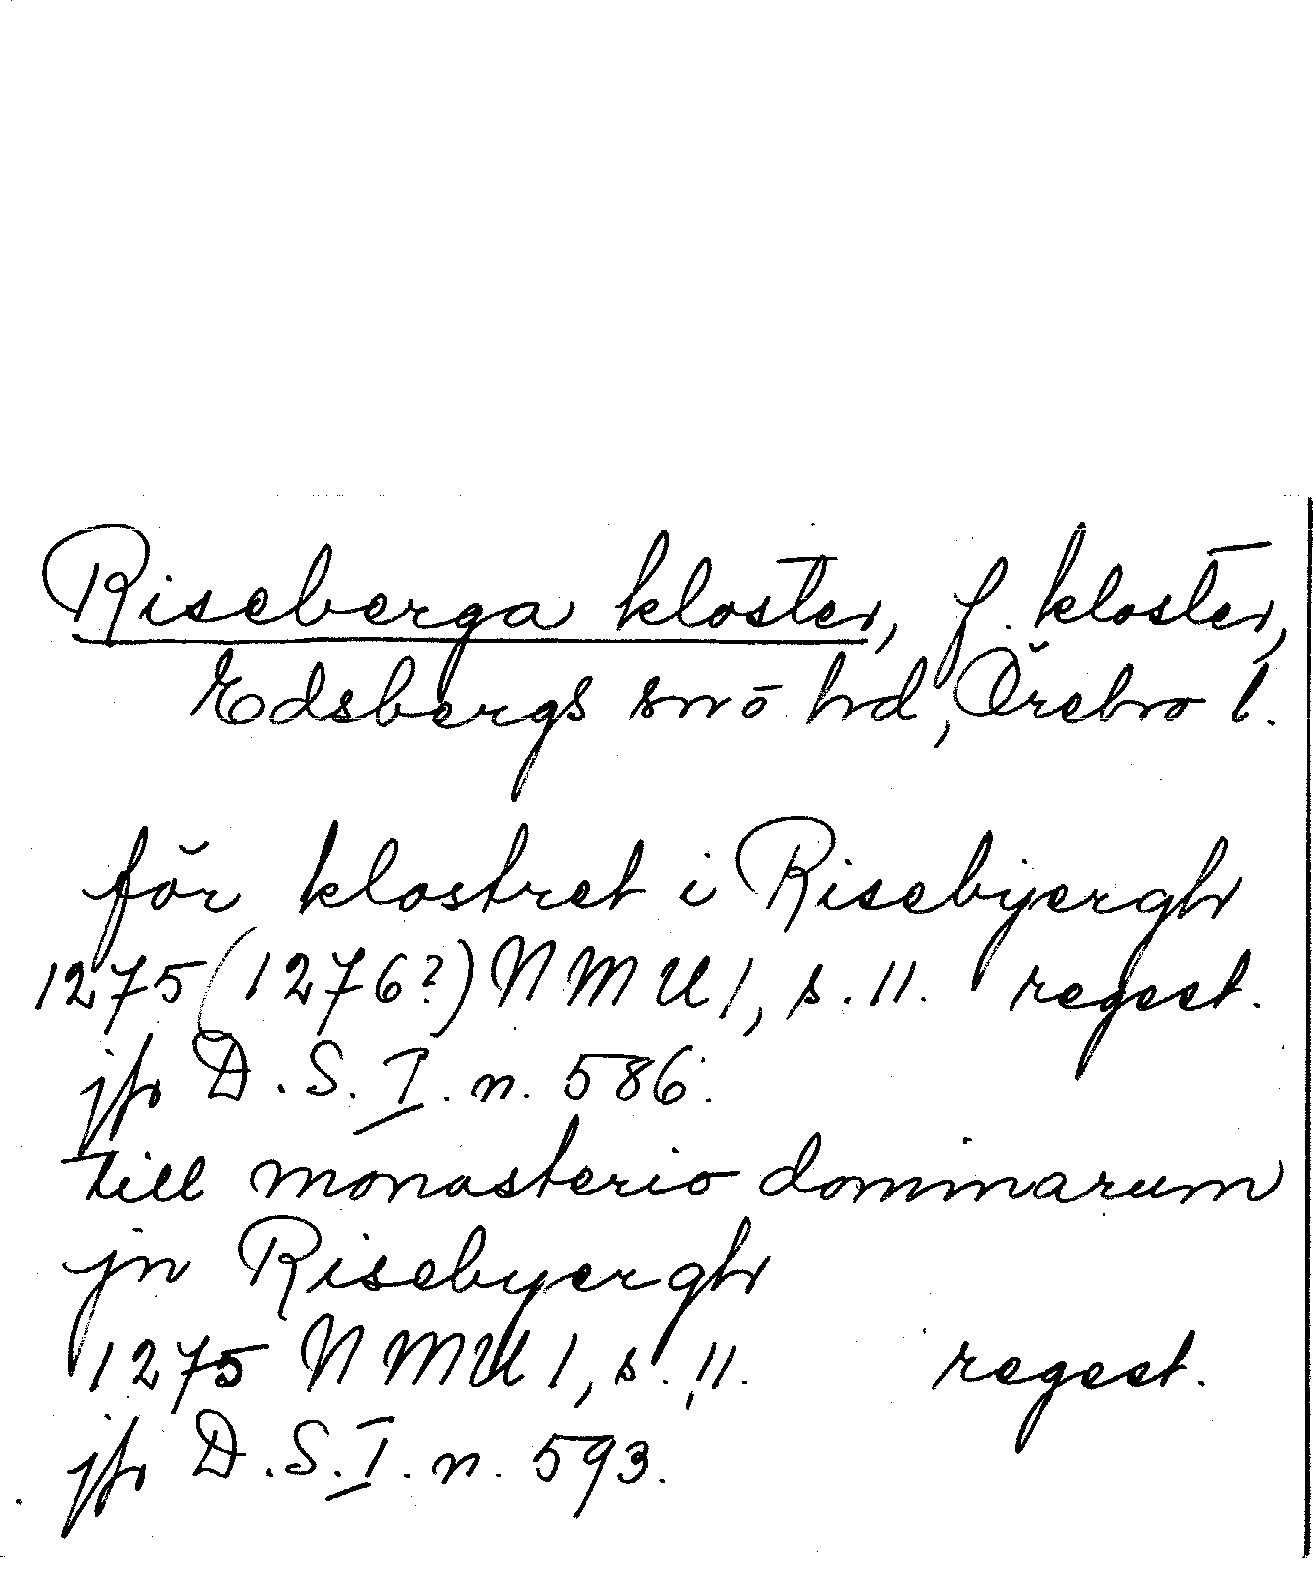 Riseberga kloster, f. kloster,
Edsbergs snö hd, Örebro l.
för klostret i Risebyergh
1275 (1276?) NMU 1, s. 11. regest.
jfr D.S.I. n. 586.
till monasterio dominarum
jn Risebyergh
1275 NMU 1, s. 11. regest.
jfr D.S.I. n. 593.